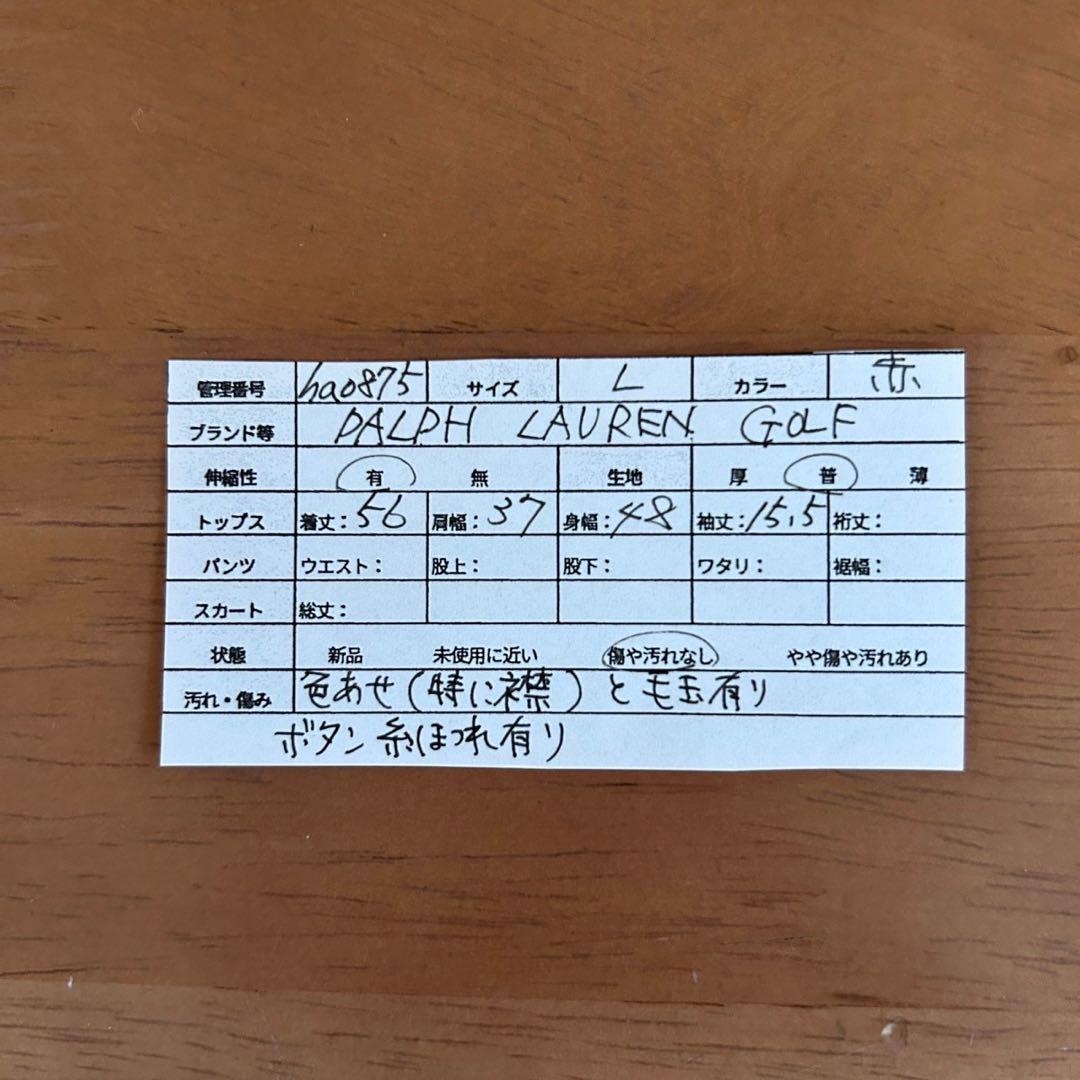 管理番号 ha0875 サイズ L カラー 赤
ブランド等 RALPH LAUREN GOLF
伸縮性 有 無 生地 厚 普 薄
トップス 着丈：56 肩幅：37 身幅：48 袖丈：15.5 裄丈：
パンツ ウエスト： 股上： 股下： ワタリ： 裾幅：
スカート 総丈：
状態 新品 未使用に近い 傷や汚れなし やや傷や汚れあり
汚れ・傷み 色あせ(特に襟)と毛玉有り
ボタン糸ほつれ有り